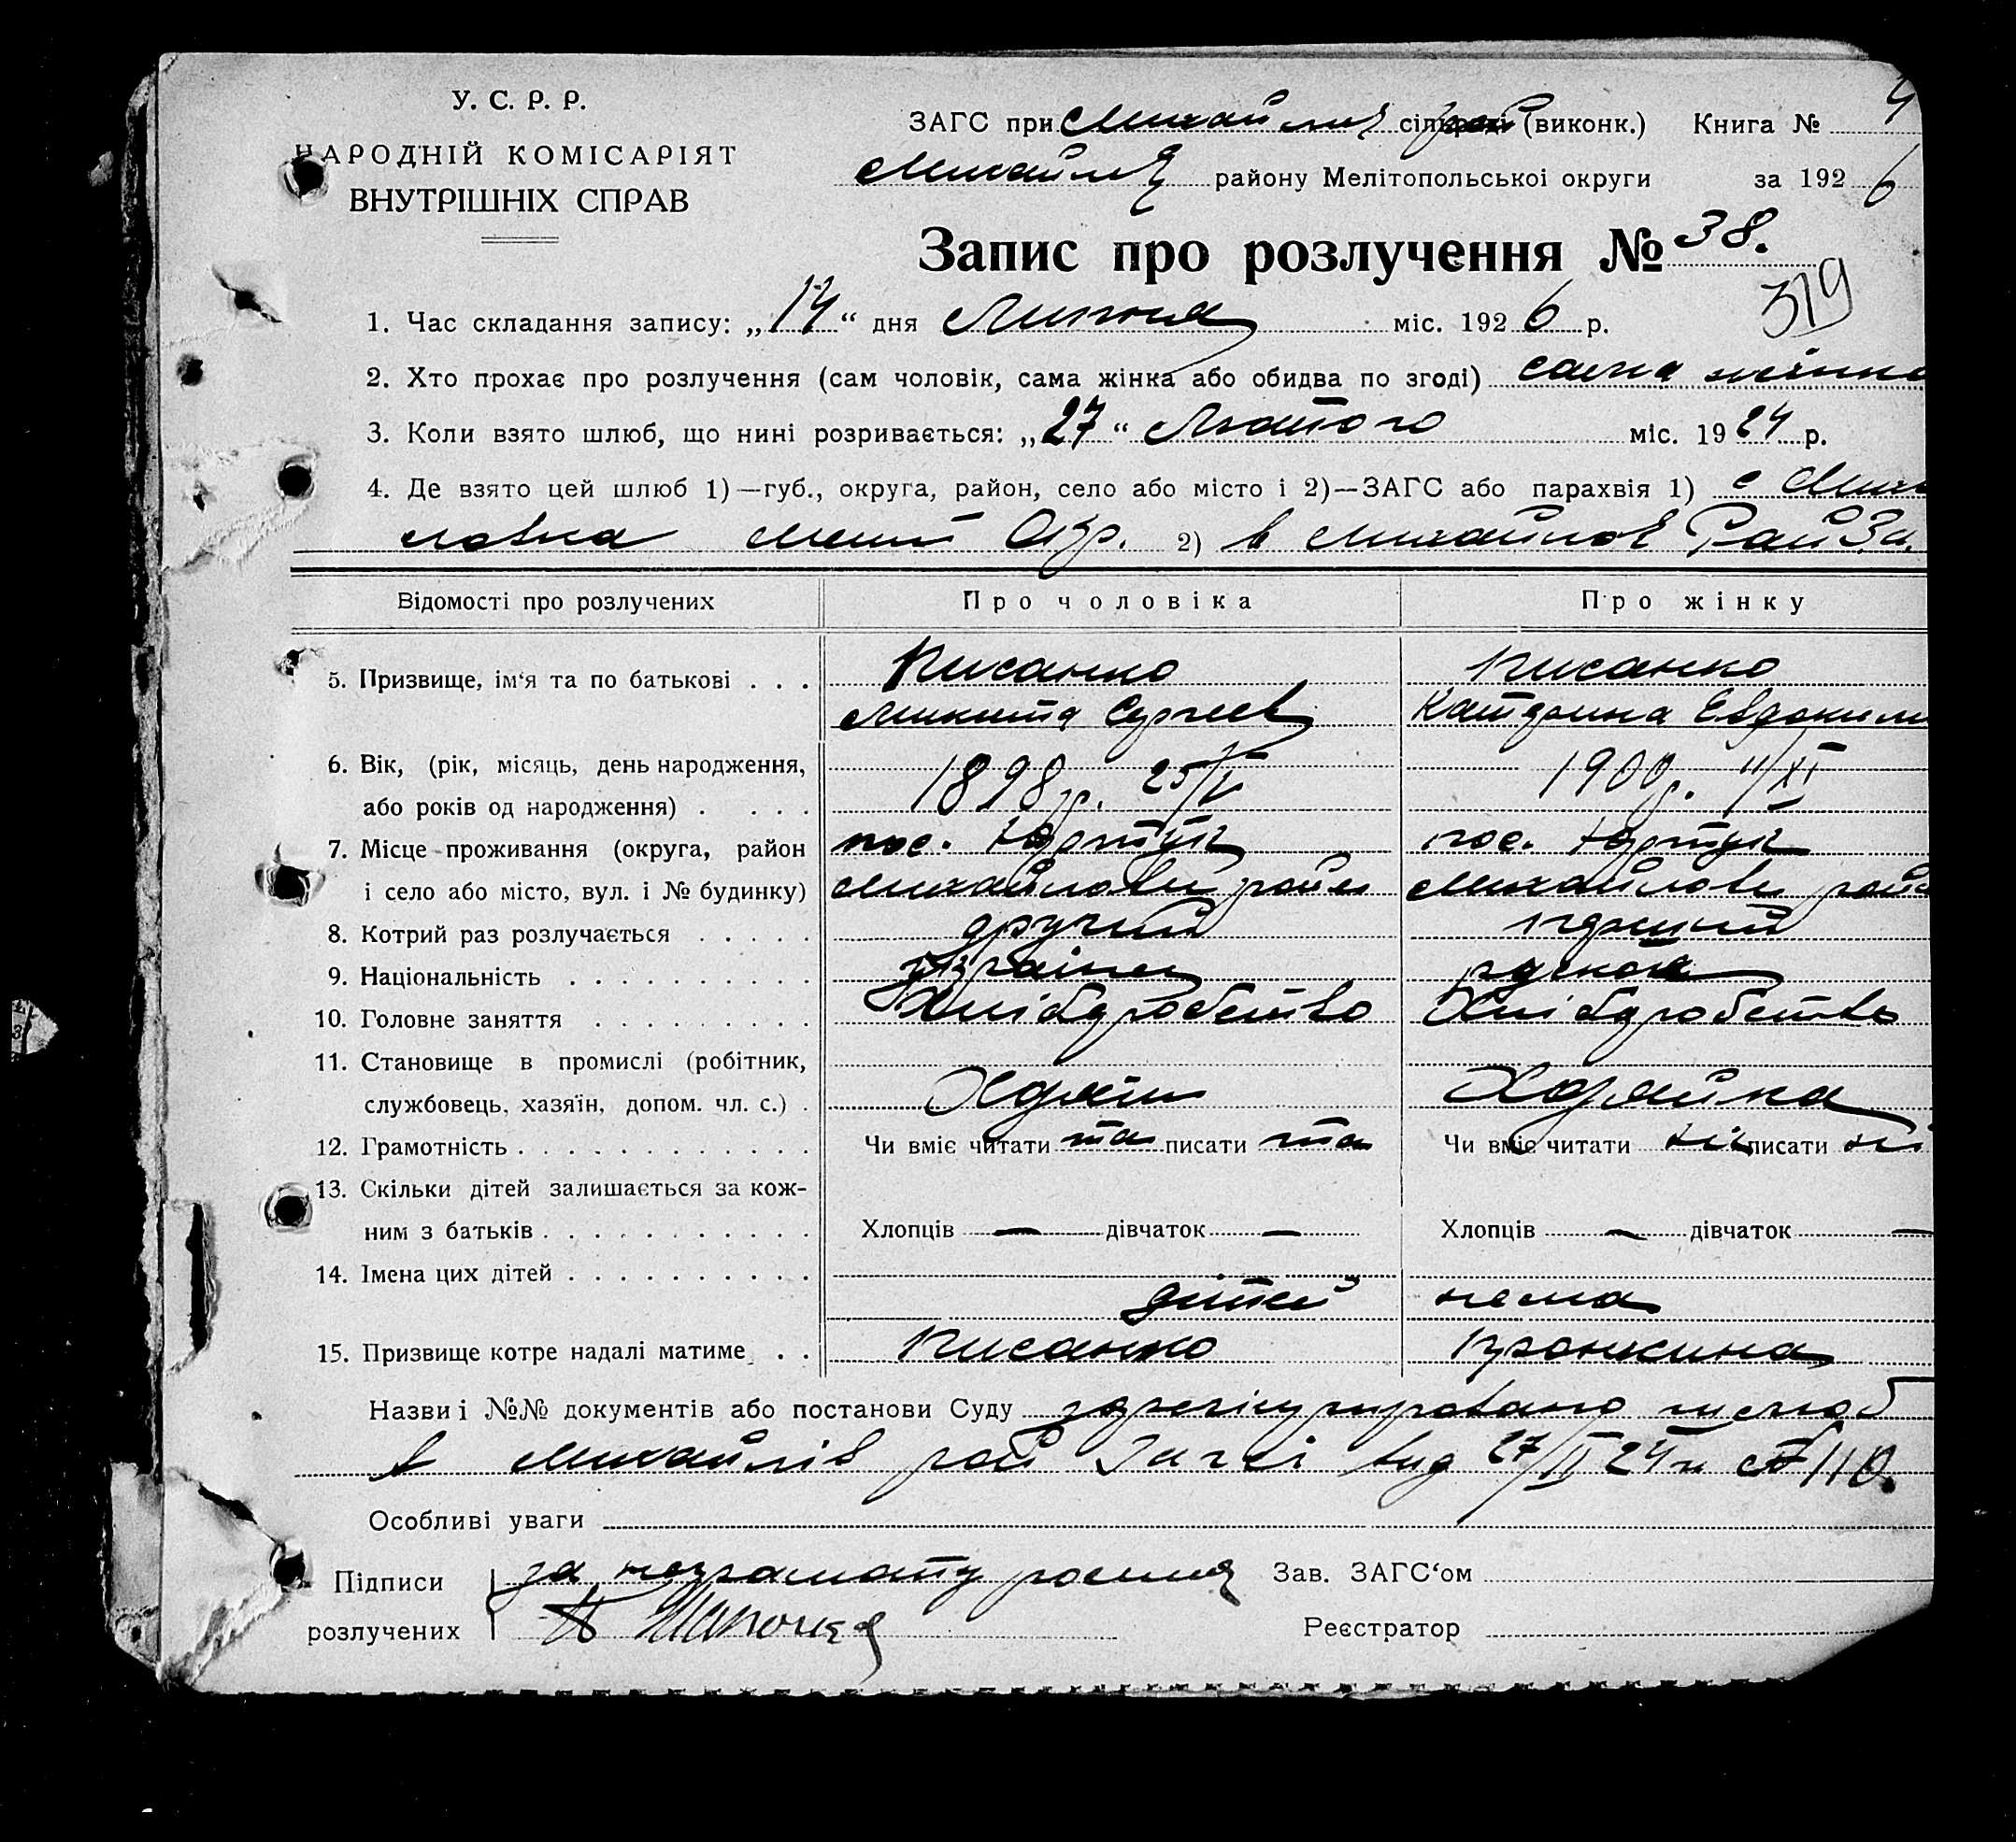 У. С. Р. Р.
НАРОДНІЙ КОМІСАРІЯТ
ВНУТРІШНІХ СПРАВ
ЗАГС при сіль рай (виконк.) Книга № 4
району Мелітопольськоі округи за 1926
Запис про розлучення № 38.
319
1. Час складання запису: „14“ дня Липня міс. 1926 р.
2. Хто прохає про розлучення (сам чоловік, сама жінка або обидва по згоді) сама жінка
3. Коли взято шлюб, що нині розривається: „27“ Лютого міс. 1924 р.
4. Де взято цей шлюб 1)—губ., округа, район, село або місто і 2)—ЗАГС або парахвія 1) с Миха
ловка Мелит Окр. 2) в Михайлов Рай За.
Відомості про розлучених Про чоловіка Про жінку
5. Призвище, ім‘я та по батькові . . . Писанко Писанко
Микита Сергеев Катерина Евдоким
6. Вік, (рік, місяць, день народження, 1898 р. 25/V 1900 р. 11/XI
або років од народження) . . . .
7. Місце проживання (округа, район пос. пос.
і село або місто, вул. і № будинку) Михайловск район Михайловск райо
8. Котрий раз розлучається . . . . . другий перший
9. Національність . . . . . . . . . . українец руская
10. Головне заняття . . . . . . . . . Хліборобство Хліборобство
11. Становище в промислі (робітник,
службовець, хазяїн, допом. чл. с.) . Хозяїн Хозяйка
12. Грамотність . . . . . . . . . . . . . Чи вміє читати та писати та Чи вміє читати ні писати ні
13. Скільки дітей залишається за кож-
ним з батьків . . . . . . . . . . . Хлопців — дівчаток — Хлопців — дівчаток —
14. Імена цих дітей . . . . . . . . . .
дітей нема
15. Призвище котре надалі матиме . . Писанко
Назви і №№ документів або постанови Суду зарегіструровано шлюб
в Михайлів рай Загсі від 27/II 24 р № 110.
Особливі уваги
Підписи за неграмотну росписа Зав. ЗАГС‘ом
розлучених Реєстратор